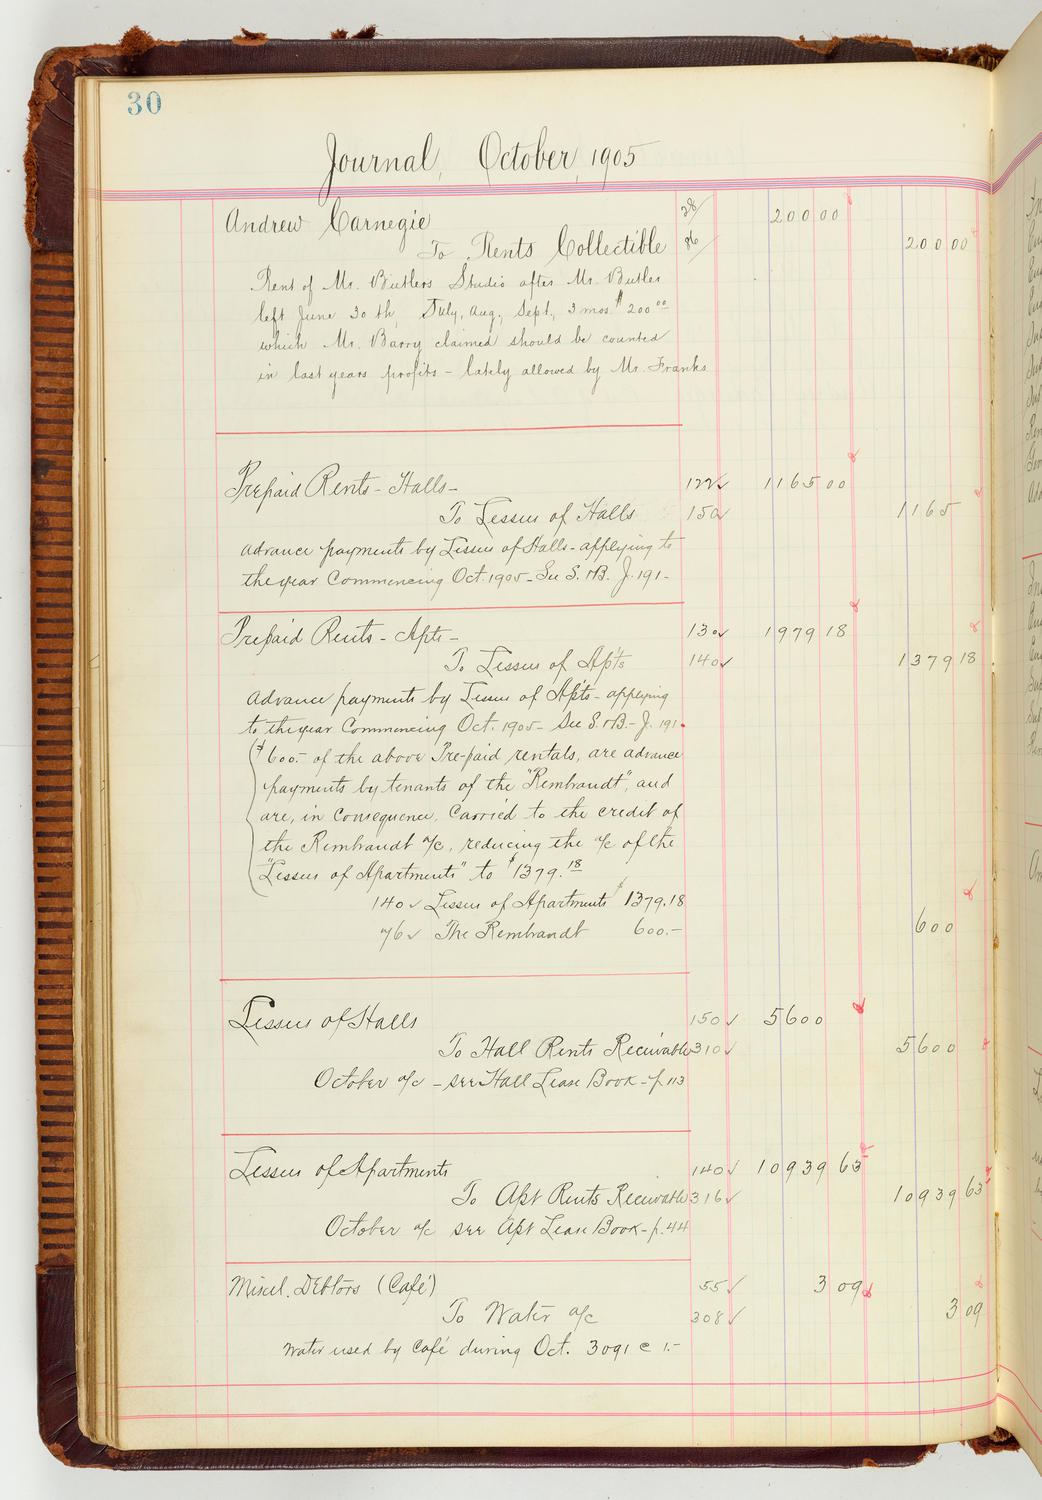 30
Journal, October, 1905
Andrew Carnegie 28/ 200 00
To Rents Collectible 86/ 200 00
Rent of Mr. Butlers Studio after Mr. Butler
left June 30th, July, Aug., Sept., 3 mos. $200 00
which Mr. Barry claimed should be counted
in last years profits - lately allowed by Mr. Franks
Prepaid Rents - Halls - 122✓ 1165 00
To Lessees of Halls 150✓ 1165
Advance payments by Lessees of Halls - applying to
the year Commencing Oct. 1905 - See S. & B. J. 191 -
Prepaid Rents - Apts - 130✓ 1979 18
To Lessees of Apts 140✓ 1379 18
Advance payments by Lessees of Apts - applying
to the year Commencing Oct. 1905 - See S. & B. - J. 191.
$600.- of the above Pre-paid rentals, are advance
payments by tenants of the "Rembrandt", and
are, in consequence, carried to the credit of
the Rembrandt a/c, reducing the a/c of the
"Lessees of Apartments" to $1379.18
140✓ Lessees of Apartments $1379.18
76✓ The Rembrandt 600.- 600
Lessees of Halls 150✓ 5600
To Hall Rents Receivable 310✓ 5600
October a/c - see Hall Lease Book - p. 113
Lessees of Apartments 140✓ 10939 63
To Apt Rents Receivable 316✓ 10939 63
October a/c see Apt Lease Book - p. 44
Miscel. Debtors (Café) 55✓ 3 09
To Water a/c 308✓ 3 09
Water used by Café during Oct. 3091 @ 1.-